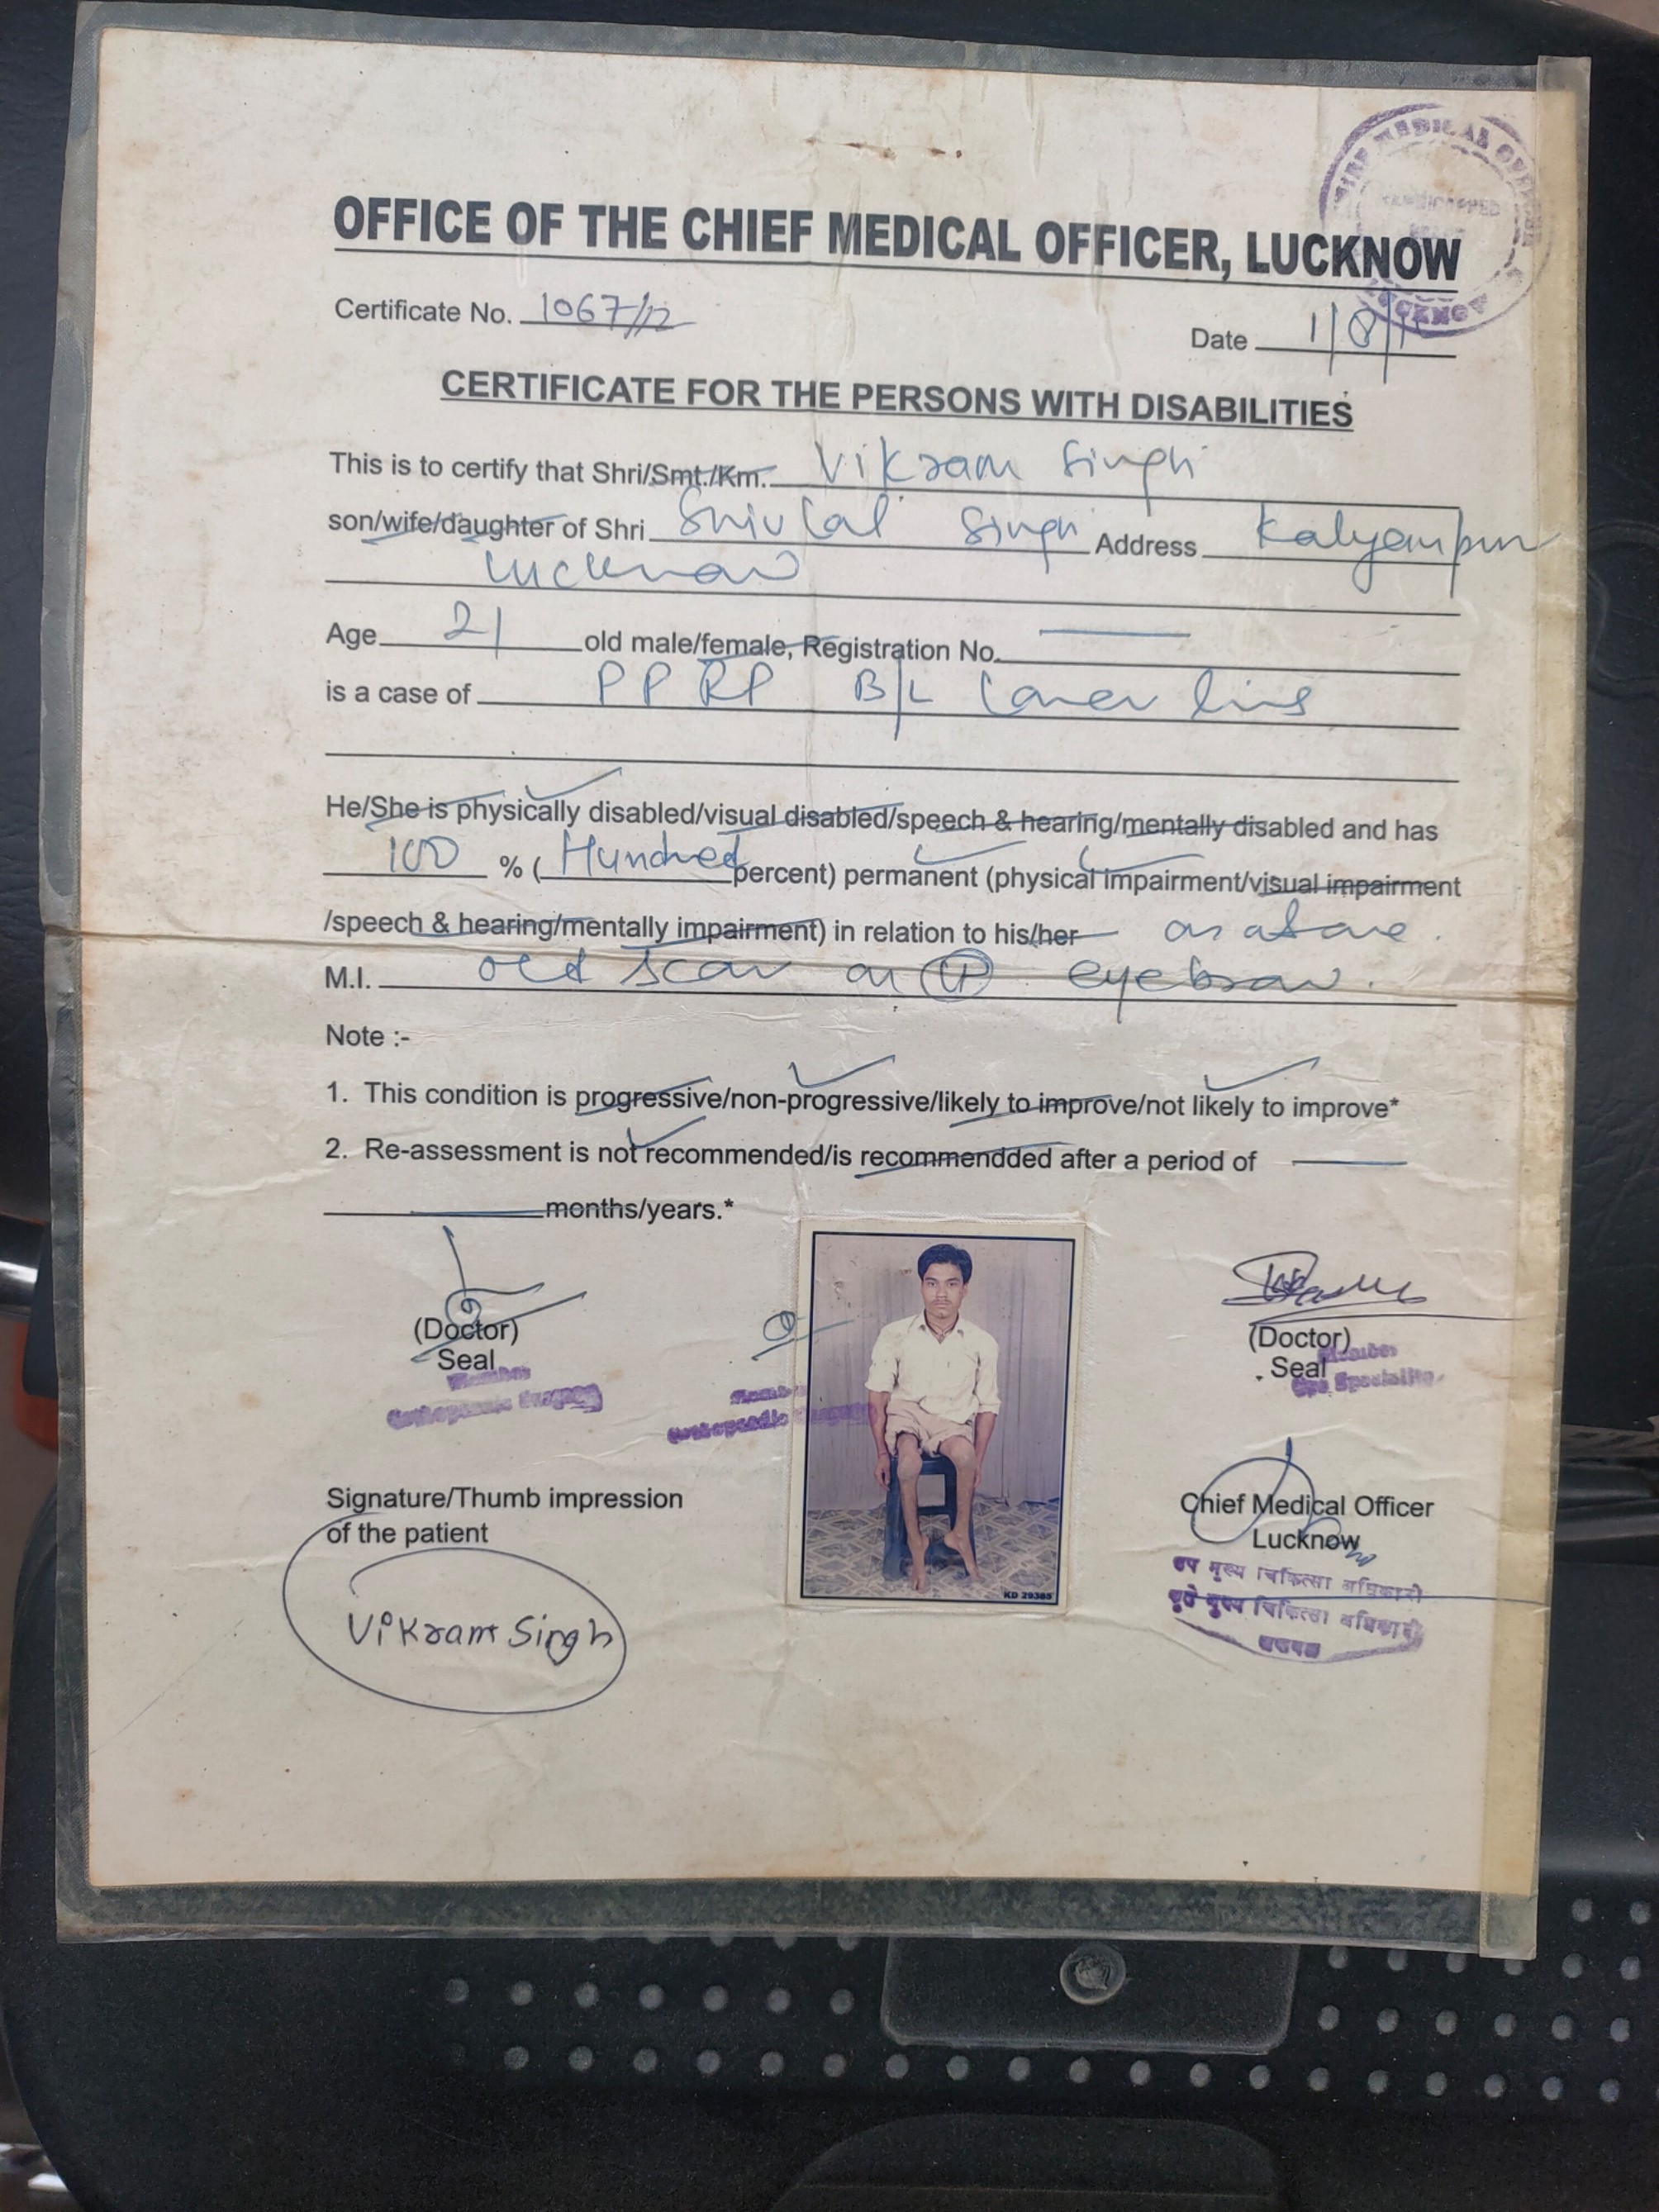 CHIEF MEDICAL OFFICER
HANDICAPPED
LUCKNOW
OFFICE OF THE CHIEF MEDICAL OFFICER, LUCKNOW
Certificate No. 1067/12
Date 1/8/
CERTIFICATE FOR THE PERSONS WITH DISABILITIES
This is to certify that Shri/Smt./Km. Vikram Singh
son/wife/daughter of Shri Shiv Lal Singh Address Kalyanpur
Lucknow
Age 21 old male/female, Registration No.
is a case of PPRP B/L Lower limb
He/She is physically disabled/visual disabled/speech & hearing/mentally disabled and has
100 % (Hundred percent) permanent (physical impairment/visual impairment
/speech & hearing/mentally impairment) in relation to his/her as above.
M.I. old scar on eyebrow.
Note :-
1. This condition is progressive/non-progressive/likely to improve/not likely to improve*
2. Re-assessment is not recommended/is recommendded after a period of
months/years.*
(Doctor)
Seal
Member
Orthopaedic Surgeon
Member
Orthopaedic
(Doctor)
Seal
Member
Speciality
Signature/Thumb impression
of the patient
Vikram Singh
KD 29385
Chief Medical Officer
Lucknow
उप मुख्य चिकित्सा अधिकारी
कृते मुख्य चिकित्सा अधिकारी
लखनऊ